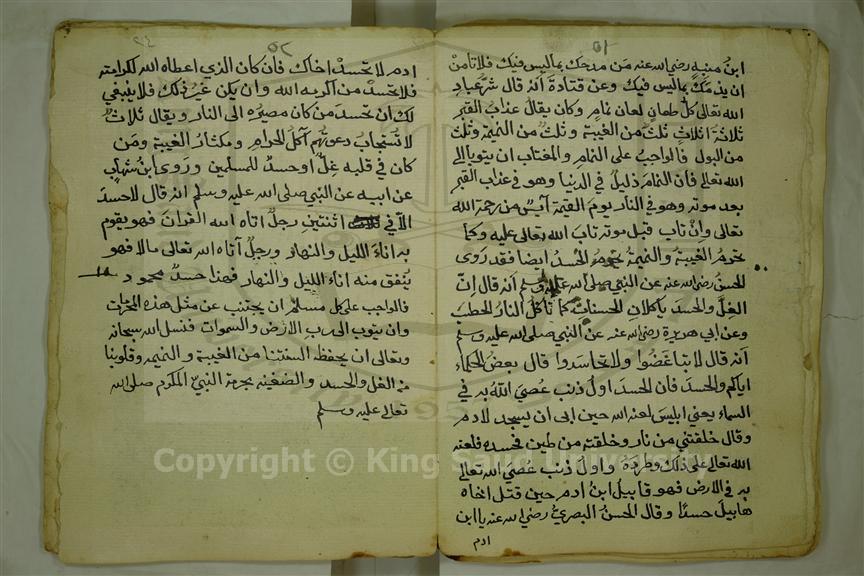 ٥١
ابن منبه رضي الله عنه من مدحك بما ليس فيك فلا تأمن
ان يذمك بما ليس فيك وعن قتادة انه قال شر عباد
الله تعالى كل طعان لعان نمام وكان يقال عذاب القبر
ثلاثة اثلاث ثلث من الغيبة وثلث من النميمة وثلث
من البول فالواجب على النمام والمغتاب ان يتوبا الى
الله تعالى فان النمام ذليل في الدنيا وهو في عذاب القبر
بعد موته وهو في النار يوم القيمة آيس من رحمة الله
تعالى وان تاب قبل موته تاب الله تعالى عليه وكما
تحرم الغيبة والنميمة تحرم الحسد ايضا فقد روى
الحسن رضي الله عنه عن النبي صلى الله عليه وسلم انه قال ان
الغل والحسد ياكلان الحسنات كما تأكل النار الحطب
وعن ابي هريرة رضي الله عنه عن النبي صلى الله عليه وسلم
انه قال لا تباغضوا ولا تحاسدوا قال بعض الحكماء
اياكم والحسد فان الحسد اول ذنب عصي الله به في
السماء يعني ابليس لعنه الله حين ابى ان يسجد لادم
وقال خلقتني من نار وخلقته من طين فحسده فلعنه
الله تعالى على ذلك وطرده واول ذنب عصي الله تعالى
به في الارض فهو قابيل ابن ادم حين قتل اخاه
هابيل حسدا وقال الحسن البصري رضي الله عنه يا ابن
ادم
٥٢
ادم لا تحسد اخاك فان كان الذي اعطاه الله لكرامته
فلا تحسد من اكرمه الله وان يكن غير ذلك فلا ينبغي
لك ان تحسد من كان مصيره الى النار ويقال ثلاث
لا تستجاب دعوتهم آكل الحرام ومكثار الغيبة ومن
كان في قلبه غل او حسد للمسلمين وروى ابن شهاب
عن ابيه عن النبي صلى الله عليه وسلم انه قال لا حسد
الا في اثنتين رجل اتاه الله القرآن فهو يقوم
به اناء الليل والنهار ورجل آتاه الله تعالى مالا فهو
ينفق منه اناء الليل والنهار فهذا حسد محمود
فالواجب على كل مسلم ان يجتنب عن مثل هذه المحرمات
وان يتوب الى رب الارض والسموات فنسئل الله سبحانه
وتعالى ان يحفظ السنتنا من الغيبة والنميمه وقلوبنا
من الغل والحسد والضغينه بحرمة النبي المكرم صلى الله
تعالى عليه وسلم
Copyright © King Saud University